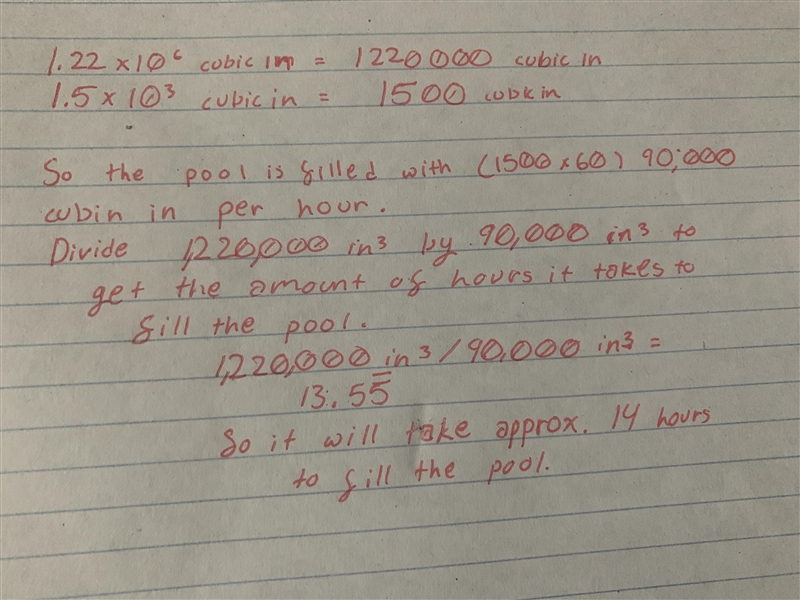 1.22 × 10⁶ cubic in = 1220000 cubic in
1.5 × 10³ cubic in = 1500 cubic in
So the pool is filled with (1500 × 60) 90,000
cubin in per hour.
Divide 1,220,000 in³ by 90,000 in³ to
get the amount of hours it takes to
fill the pool.
1,220,000 in³ / 90,000 in³ =
13.5̅5̅
So it will take approx. 14 hours
to fill the pool.